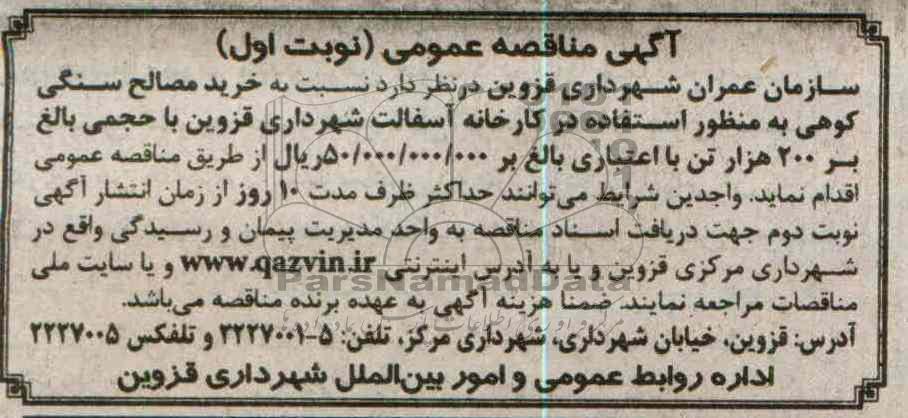 آگهی مناقصه عمومی (نوبت اول)
سازمان عمران شهرداری قزوین درنظر دارد نسبت به خرید مصالح سنگی
کوهی به منظور استفاده در کارخانه آسفالت شهرداری قزوین با حجمی بالغ
بر ۲۰۰ هزار تن با اعتباری بالغ بر ۵۰/۰۰۰/۰۰۰/۰۰۰ریال از طریق مناقصه عمومی
اقدام نماید. واجدین شرایط می‌توانند حداکثر ظرف مدت ۱۰ روز از زمان انتشار آگهی
نوبت دوم جهت دریافت اسناد مناقصه به واحد مدیریت پیمان و رسیدگی واقع در
شهرداری مرکزی قزوین و یا به آدرس اینترنتی www.qazvin.ir و یا سایت ملی
ParsNamadData
مناقصات مراجعه نمایند. ضمنا هزینه آگهی به عهده برنده مناقصه می‌باشد.
آدرس: قزوین، خیابان شهرداری، شهرداری مرکز، تلفن: ۵-۲۲۲۷۰۰۱ و تلفکس ۲۲۲۷۰۰۵
اداره روابط عمومی و امور بین‌الملل شهرداری قزوین